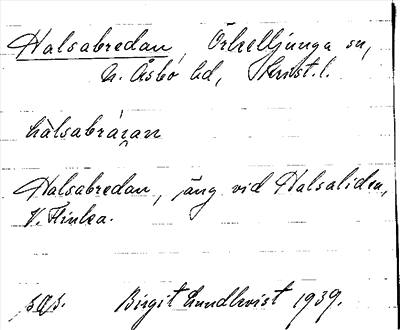 Halsabredan, Örkelljunga sn,
N. Åsbo hd, Krist. l.
Halsabredan, äng vid Halsaliden,
V. Flinka.
sqs. Birgit Lundkvist 1939.